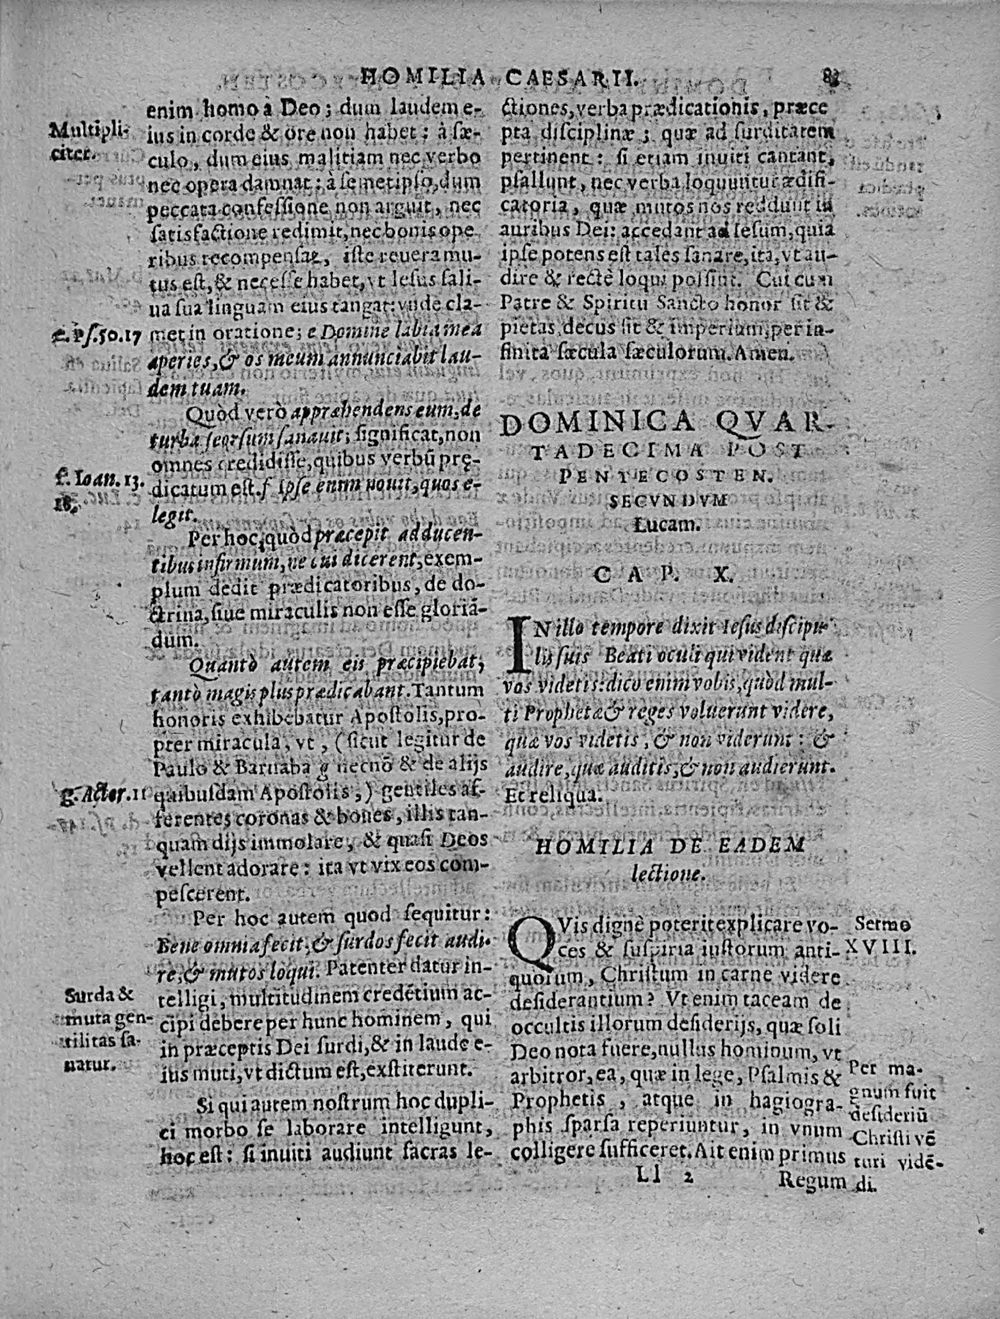 HOMILIA CAESARII.
enim homo à Deo; dum laudem e-
ius in corde & ore non habet: à sæ-
culo, dum eius malitiam nec verbo
nec opera damnat: à semetipso, dum
peccata confessione non arguit, nec
satisfactione redimit, nec bonis ope
ribus recompensat, iste revera mu-
tus est, & necesse habet, vt Iesus sali-
ua sua linguam eius tangat; vnde cla-
met in oratione; e Domine labia mea
aperies, & os meum annunciabit lau-
dem tuam.
Quòd verò appræhendens eum, de
turba seorsum sanauit; significat, non
omnes credidisse, quibus verbū prę-
dicatum est. f ipse enim nouit, quos e-
legit.
Per hoc, quòd præcepit adducen-
tibus infirmum, ne cui dicerent, exem-
plum dedit prædicatoribus, de do-
ctrina, siue miraculis non esse gloriā-
dum.
Quantò autem eis præcipiebat,
tantò magis plus prædicabant. Tantum
honoris exhibebatur Apostolis, pro-
pter miracula, vt, (sicut legitur de
Paulo & Barnaba g necnō & de alijs
quibusdam Apostolis,) gentiles af-
ferentes coronas & boues, illis tan-
quam dijs immolare, & quasi Deos
vellent adorare: ita vt vix eos com-
pescerent.
Per hoc autem quod sequitur:
Bene omnia fecit, & surdos fecit audi-
re, & mutos loqui. Patenter datur in-
telligi, multitudinem credētium ac-
cipi debere per hunc hominem, qui
in præceptis Dei surdi, & in laude e-
ius muti, vt dictum est, exstiterunt.
Si qui autem nostrum hoc dupli-
ci morbo se laborare intelligunt,
hoc est: si inuiti audiunt sacras le-
Multipli-
citer.
e. Ps. 50. 17
f. Ioan. 13.
18.
g. Actor. 11
Surda &
muta gen-
tilitas sa-
natur.
ctiones, verba prædicationis, præce
pta disciplinæ; quæ ad surditatem
pertinent: si etiam inuiti cantant,
psallunt, nec verba loquuntur ædifi-
catoria, quæ mutos nos reddunt in
auribus Dei: accedant ad Iesum, quia
ipse potens est tales sanare, ita, vt au-
dire & rectè loqui possint. Cui cum
Patre & Spiritu Sancto honor sit &
pietas, decus sit & imperium, per in-
finita sæcula sæculorum. Amen.
DOMINICA QVAR-
TADECIMA POST
PENTECOSTEN.
SECVNDVM
Lucam.
CAP. X.
IN illo tempore dixit Iesus discipu-
lis suis Beati oculi qui vident quæ
vos videtis: dico enim vobis, quòd mul-
ti Prophetæ & reges voluerunt videre,
quæ vos videtis, & non viderunt: &
audire, quæ auditis, & non audierunt.
Et reliqua.
HOMILIA DE EADEM
lectione.
QVis dignè poterit explicare vo-
ces & suspiria iustorum anti-
quorum, Christum in carne videre
desiderantium? Vt enim taceam de
occultis illorum desiderijs, quæ soli
Deo nota fuere, nullus hominum, vt
arbitror, ea, quæ in lege, Psalmis &
Prophetis, atque in hagiogra-
phis sparsa reperiuntur, in vnum
colligere sufficeret. Ait enim primus
Sermo
XVIII.
Per ma-
gnum fuit
desideriū
Christi vē
turi vidē-
di.
Ll 2
Regum